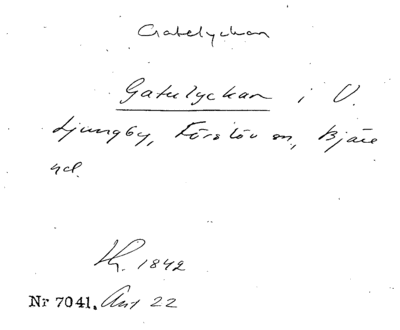 Gatelyckan
Gatulyckan i V.
Ljungby, Förslöv sn, Bjäre
hd.
Lh. 1842
Nr 7041. Ant 22